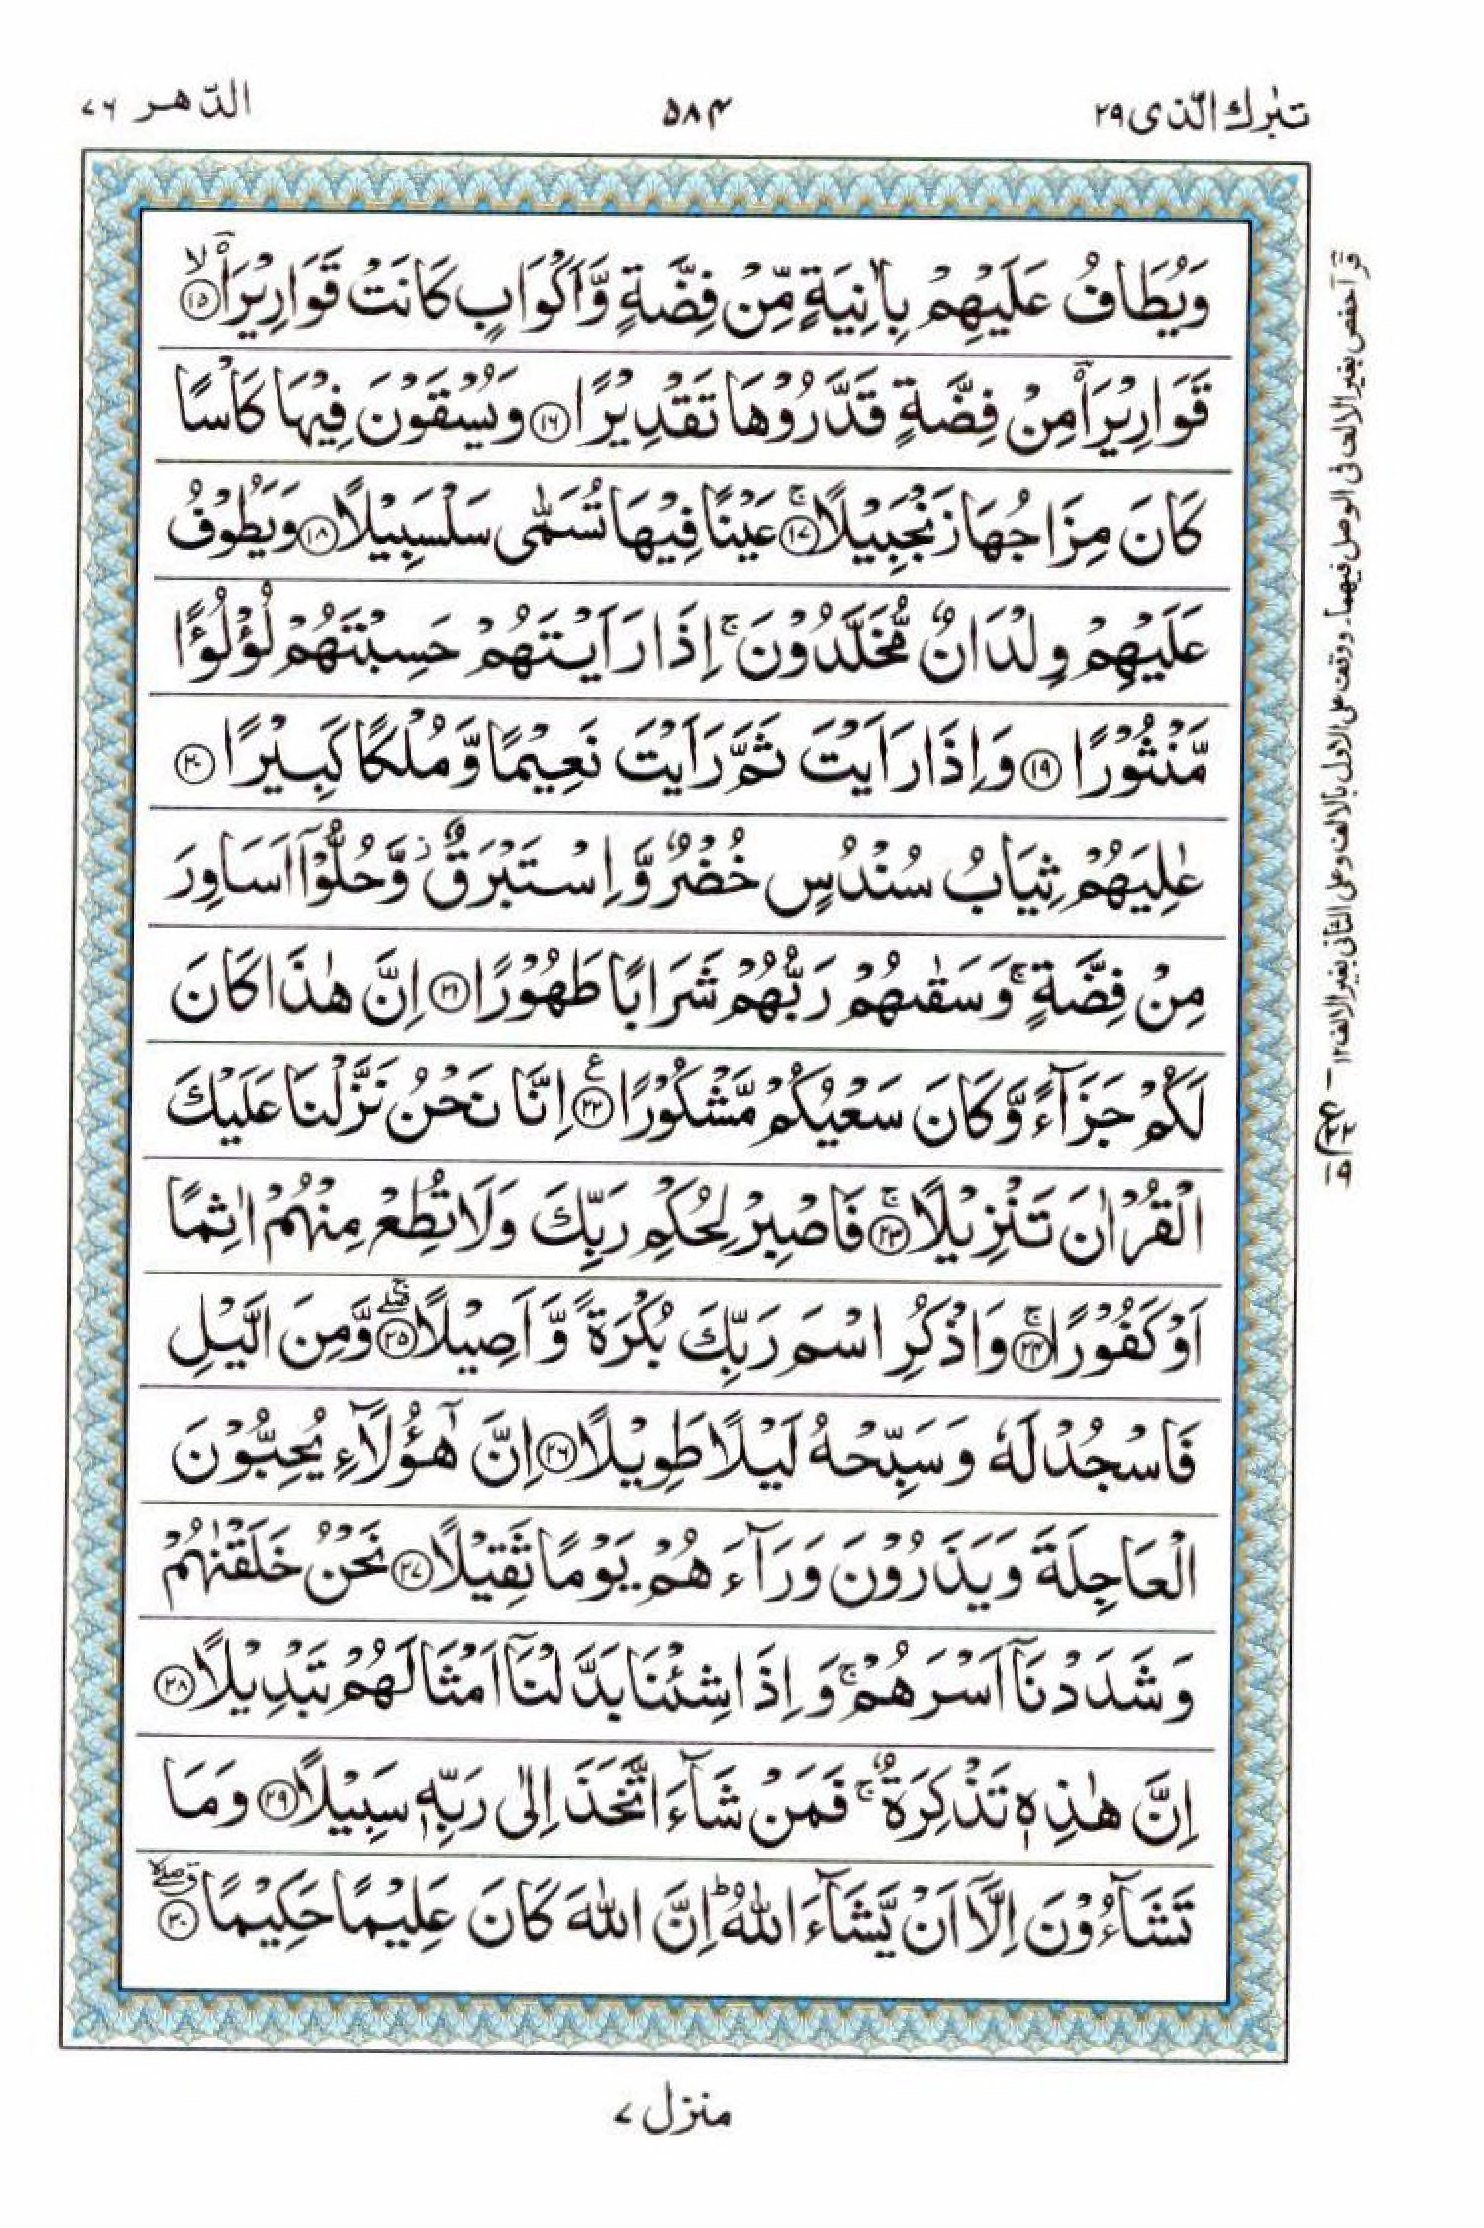 تبٰرك الّذى ٢٩
٥٨٤
الدّهر ٧٦
وَيُطَافُ عَلَيْهِمْ بِاٰنِيَةٍ مِّنْ فِضَّةٍ وَّاَكْوَابٍ كَانَتْ قَوَارِيْرَا۟ ۙ‏﴿١٥﴾
قَوَارِيْرَا۟ مِنْ فِضَّةٍ قَدَّرُوْهَا تَقْدِيْرًا ﴿١٦﴾ وَيُسْقَوْنَ فِيْهَا كَاْسًا
كَانَ مِزَاجُهَا زَنْجَبِيْلًا ۚ﴿١٧﴾ عَيْنًا فِيْهَا تُسَمّٰى سَلْسَبِيْلًا ﴿١٨﴾ وَيَطُوْفُ
عَلَيْهِمْ وِلْدَانٌ مُّخَلَّدُوْنَ ۚ اِذَا رَاَيْتَهُمْ حَسِبْتَهُمْ لُؤْلُؤًا
مَّنْثُوْرًا ﴿١٩﴾ وَاِذَا رَاَيْتَ ثَمَّ رَاَيْتَ نَعِيْمًا وَّمُلْكًا كَبِيْرًا ﴿٢٠﴾
عٰلِيَهُمْ ثِيَابُ سُنْدُسٍ خُضْرٌ وَّاِسْتَبْرَقٌ ز وَّحُلُّوْۤا اَسَاوِرَ
مِنْ فِضَّةٍ ۚ وَسَقٰىهُمْ رَبُّهُمْ شَرَابًا طَهُوْرًا ﴿٢١﴾ اِنَّ هٰذَا كَانَ
لَكُمْ جَزَآءً وَّكَانَ سَعْيُكُمْ مَّشْكُوْرًا ع﴿٢٢﴾ اِنَّا نَحْنُ نَزَّلْنَا عَلَيْكَ
الْقُرْاٰنَ تَنْزِيْلًا ۚ﴿٢٣﴾ فَاصْبِرْ لِحُكْمِ رَبِّكَ وَلَا تُطِعْ مِنْهُمْ اٰثِمًا
اَوْ كَفُوْرًا ۚ﴿٢٤﴾ وَاذْكُرِ اسْمَ رَبِّكَ بُكْرَةً وَّاَصِيْلًا ۖۚ﴿٢٥﴾ وَّمِنَ الَّيْلِ
فَاسْجُدْ لَهٗ وَسَبِّحْهُ لَيْلًا طَوِيْلًا ﴿٢٦﴾ اِنَّ هٰٓؤُلَآءِ يُحِبُّوْنَ
الْعَاجِلَةَ وَيَذَرُوْنَ وَرَآءَهُمْ يَوْمًا ثَقِيْلًا ﴿٢٧﴾ نَحْنُ خَلَقْنٰهُمْ
وَشَدَدْنَاۤ اَسْرَهُمْ ۚ وَاِذَا شِئْنَا بَدَّلْنَاۤ اَمْثَالَهُمْ تَبْدِيْلًا ﴿٢٨﴾
اِنَّ هٰذِهٖ تَذْكِرَةٌ ۚ فَمَنْ شَآءَ اتَّخَذَ اِلٰى رَبِّهٖ سَبِيْلًا ﴿٢٩﴾ وَمَا
تَشَآءُوْنَ اِلَّاۤ اَنْ يَّشَآءَ اللّٰهُ ؕ اِنَّ اللّٰهَ كَانَ عَلِيْمًا حَكِيْمًا ﴿٣٠﴾
قرأ حفص بغير الالف فى الوصل فيهما۔ ووقف على الاول بالالف وعلى الثانى بغير الالف ١٢
منزل ٧